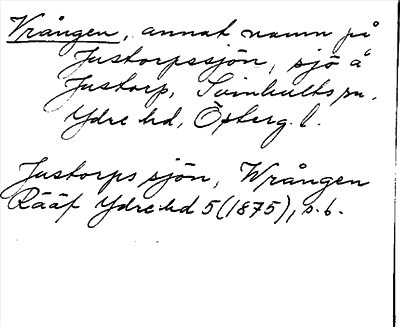 Vrången, annat namn på
Justorpssjön, sjö å
Justorp, Svinhults sn.
Ydre hd, Östergl.
Justorps sjön, Wrången
Rääf Ydre hd 5 (1875), s. 6.